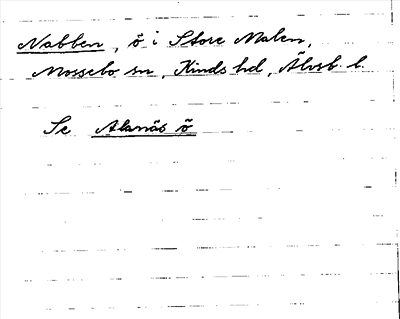 Nabben, ö i Store Malen,
Mossebo sn, Kinds hd, Älvsb. l.
Se Alanäs ö